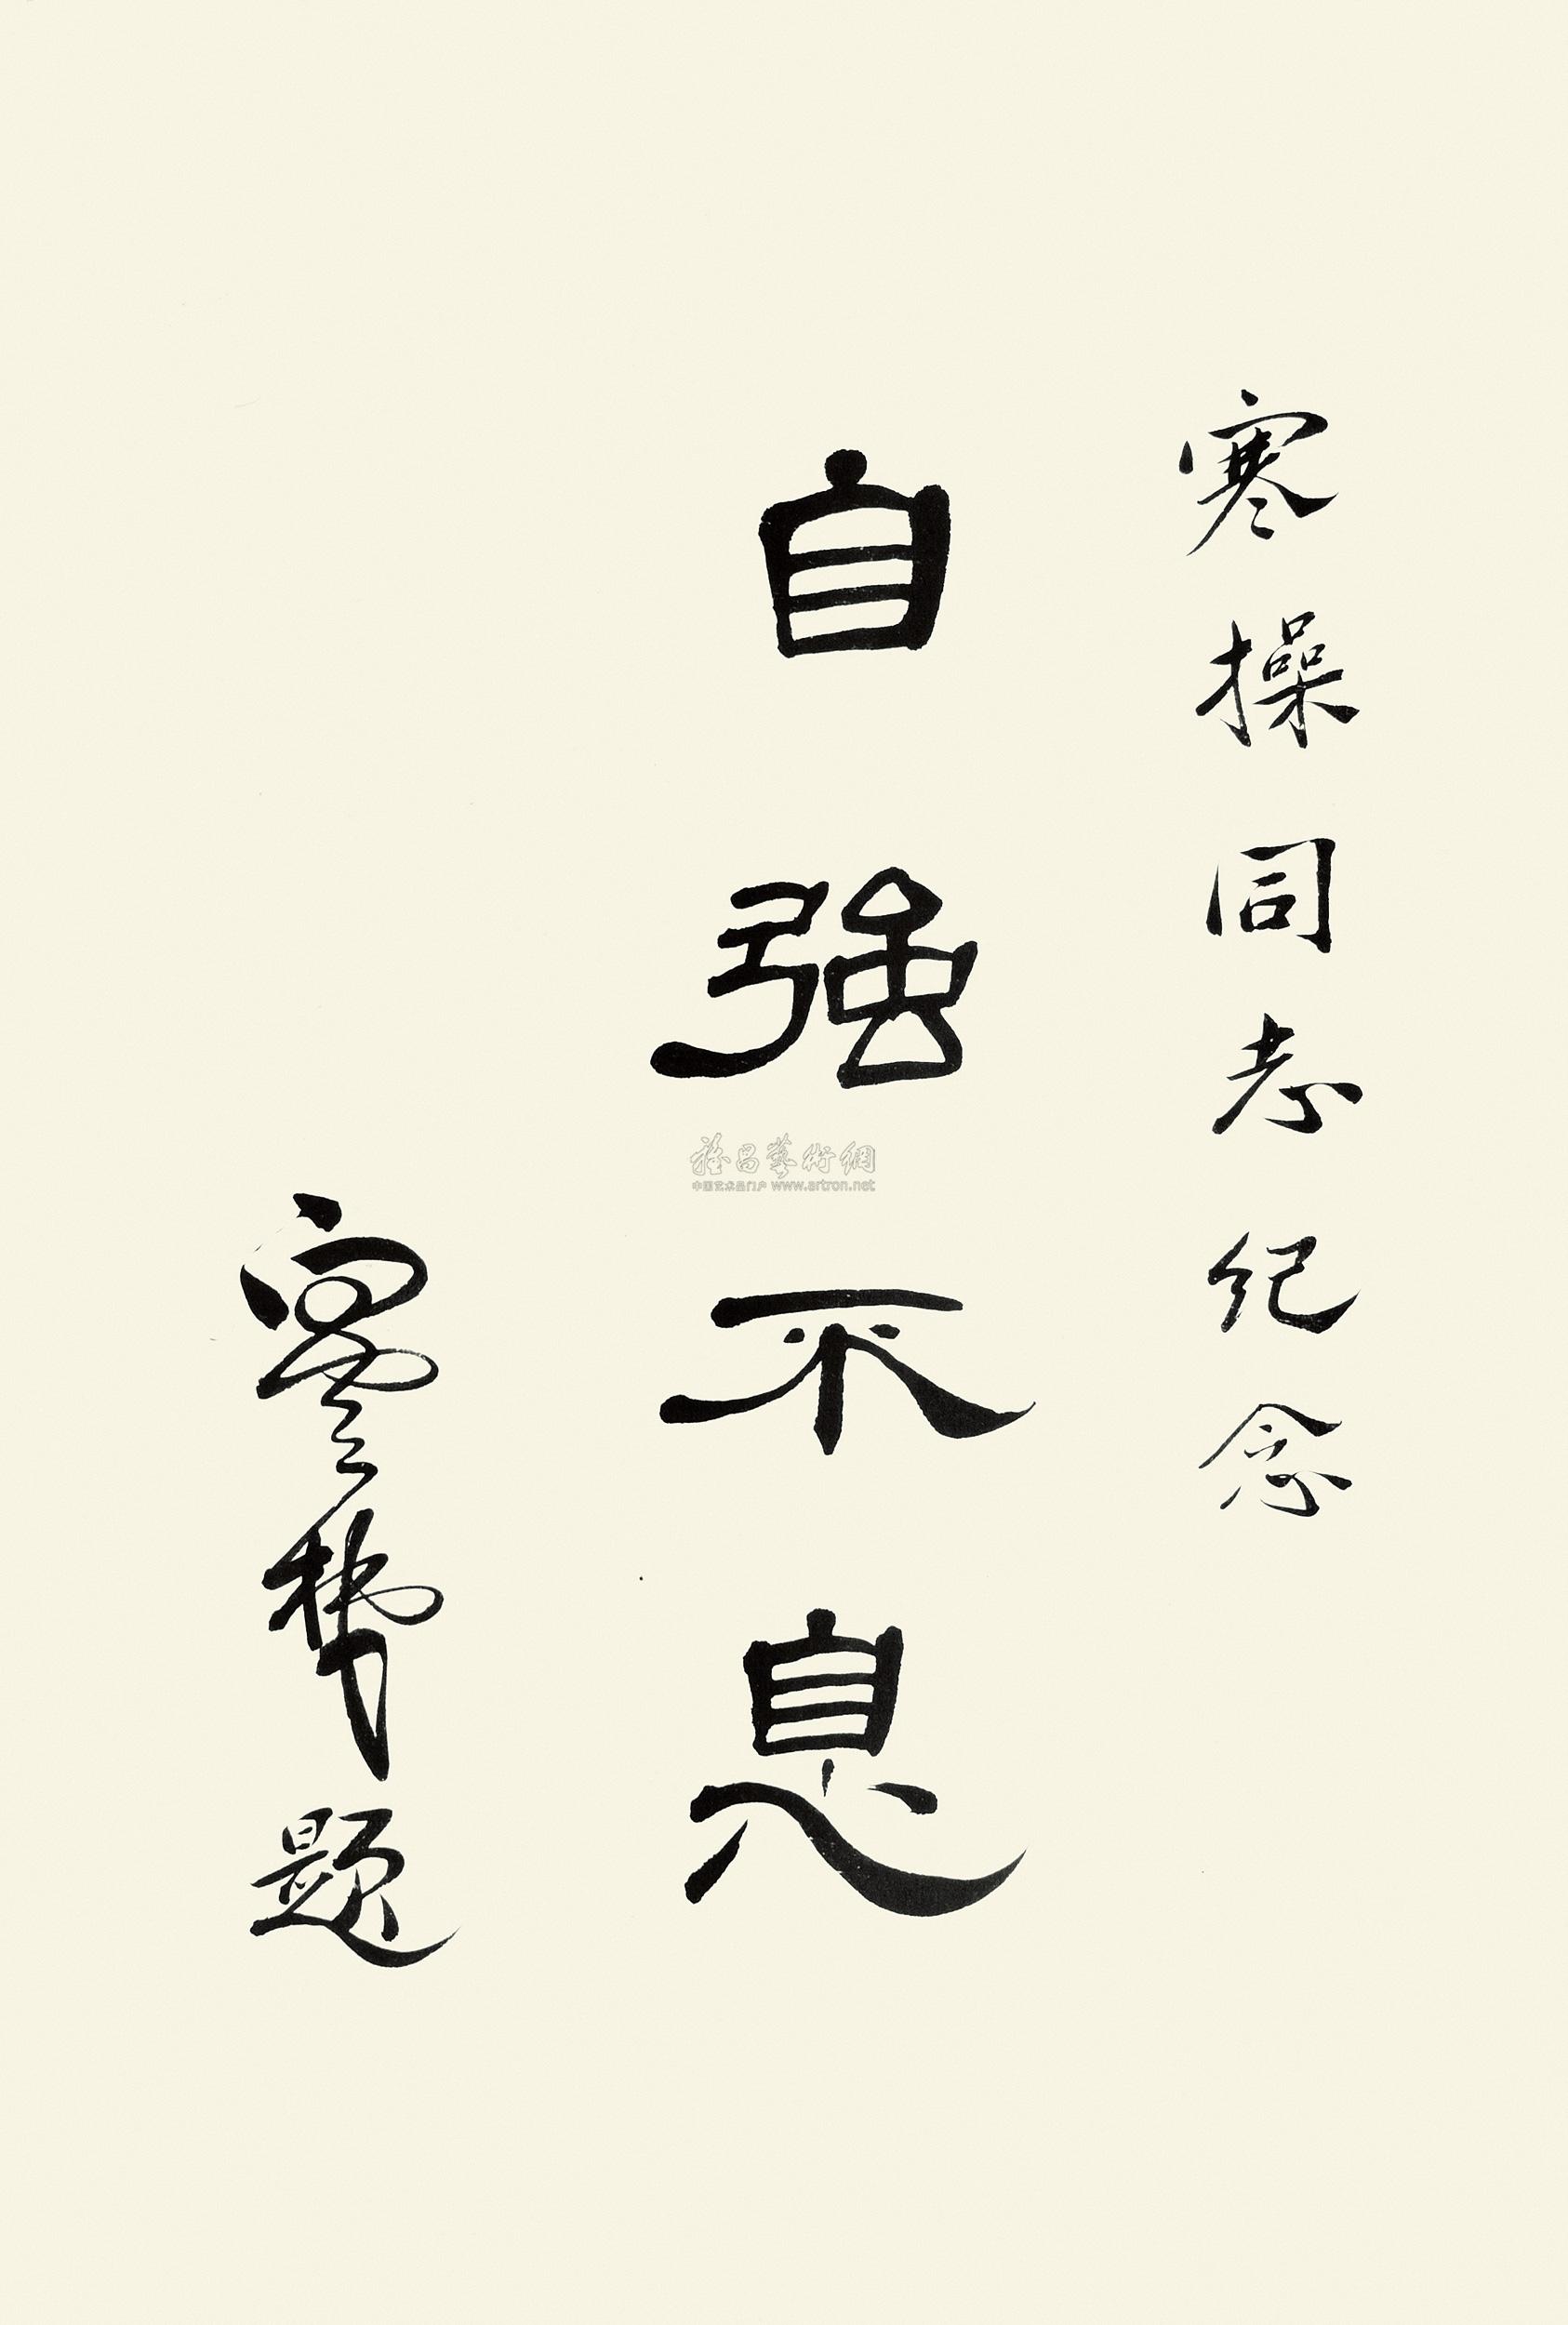 寒操同志纪念
自强不息
题
雅昌藝術網
中国艺术品门户 www.artron.net